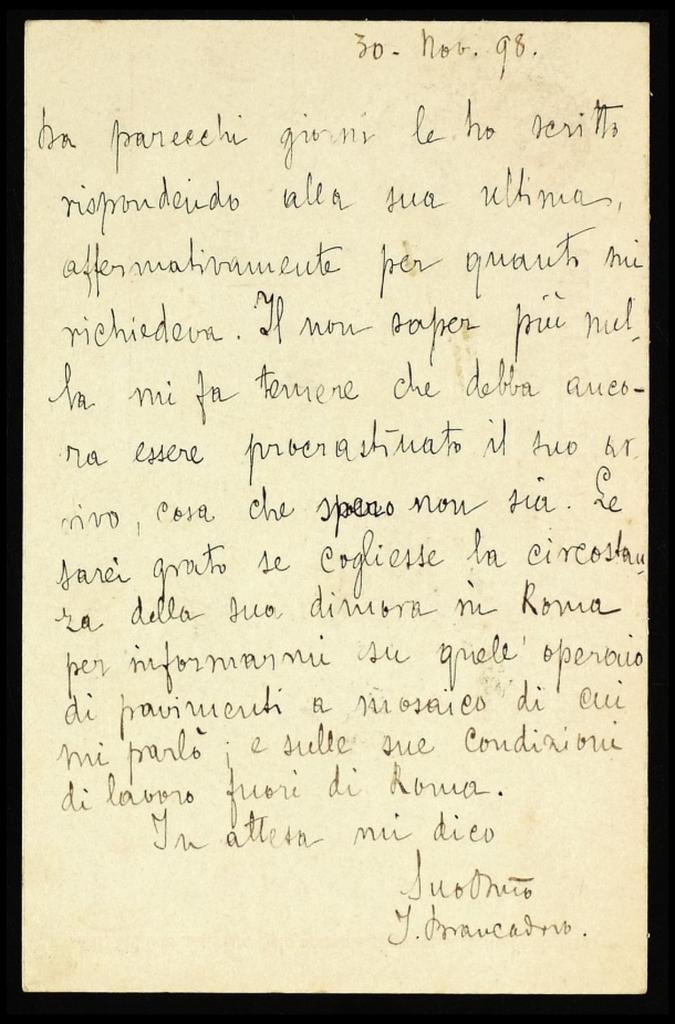 30. Nov. 98.
Da parecchi giorni le ho scritto
rispondendo alla sua ultima,
affermativamente per quanto mi
richiedeva. Il non saper più nul-
la mi fa temere che debba anco-
ra essere procrastinato il suo ar-
rivo, cosa che spero non sia. Le
sarei grato se cogliesse la circostan-
za della sua dimora in Roma
per informarmi su quell' operaio
di pavimenti a mosaico di cui
mi parlò; e sulle sue condizioni
di lavoro fuori di Roma.
In attesa mi dico
Suo